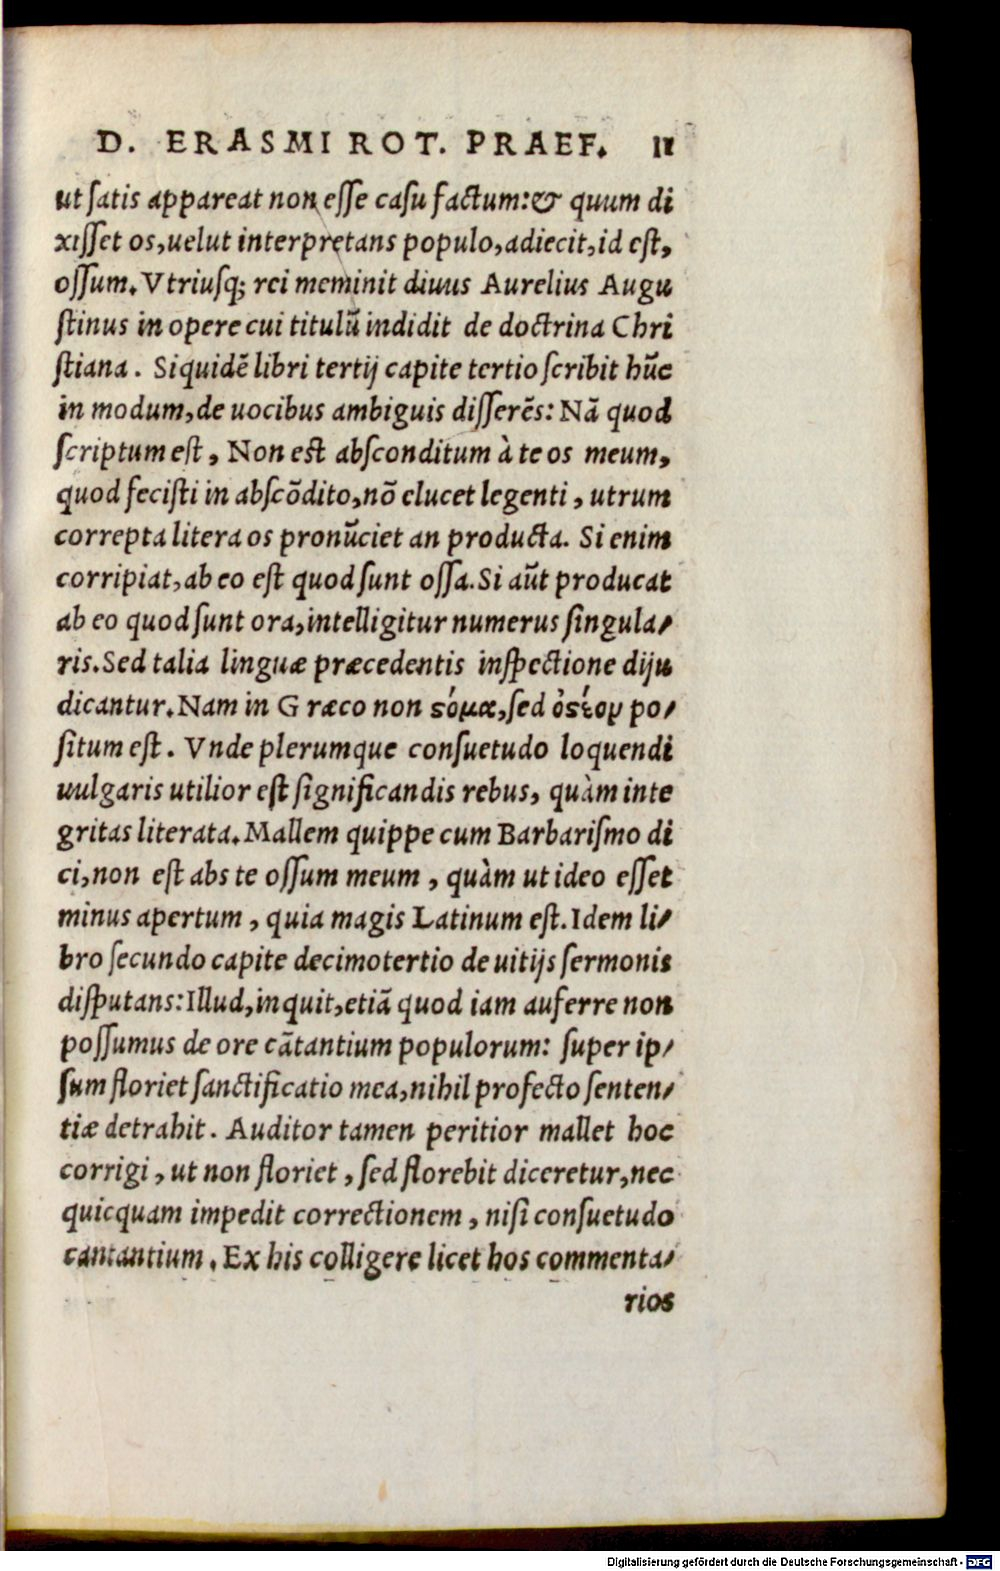 D. ERASMI ROT. PRAEF. 11
ut ſatis appareat non eſſe caſu factum: & quum di
xiſſet os, uelut interpretans populo, adiecit, id eſt,
oſſum. Vtriuſq; rei meminit diuus Aurelius Augu
ſtinus in opere cui titulū indidit de doctrina Chri
ſtiana. Siquidē libri tertij capite tertio ſcribit hūc
in modum, de uocibus ambiguis diſſerēs: Nā quod
ſcriptum eſt, Non eſt abſconditum à te os meum,
quod feciſti in abſcōdito, nō elucet legenti, utrum
correpta litera os pronūciet an producta. Si enim
corripiat, ab eo eſt quod ſunt oſſa. Si aūt producat
ab eo quod ſunt ora, intelligitur numerus ſingula-
ris. Sed talia linguæ præcedentis inſpectione diju
dicantur. Nam in Græco non ϛόμα, ſed ὀϛέον po-
ſitum eſt. Vnde plerumque conſuetudo loquendi
uulgaris utilior eſt ſignificandis rebus, quàm inte
gritas literata. Mallem quippe cum Barbariſmo di
ci, non eſt abs te oſſum meum, quàm ut ideo eſſet
minus apertum, quia magis Latinum eſt. Idem li-
bro ſecundo capite decimotertio de uitijs ſermonis
diſputans: Illud, inquit, etiā quod iam auferre non
poſſumus de ore cātantium populorum: ſuper ip-
ſum floriet ſanctificatio mea, nihil profecto ſenten-
tiæ detrahit. Auditor tamen peritior mallet hoc
corrigi, ut non floriet, ſed florebit diceretur, nec
quicquam impedit correctionem, niſi conſuetudo
cantantium. Ex his colligere licet hos commenta-
rios
Digitalisierung gefördert durch die Deutsche Forschungsgemeinschaft - DFG